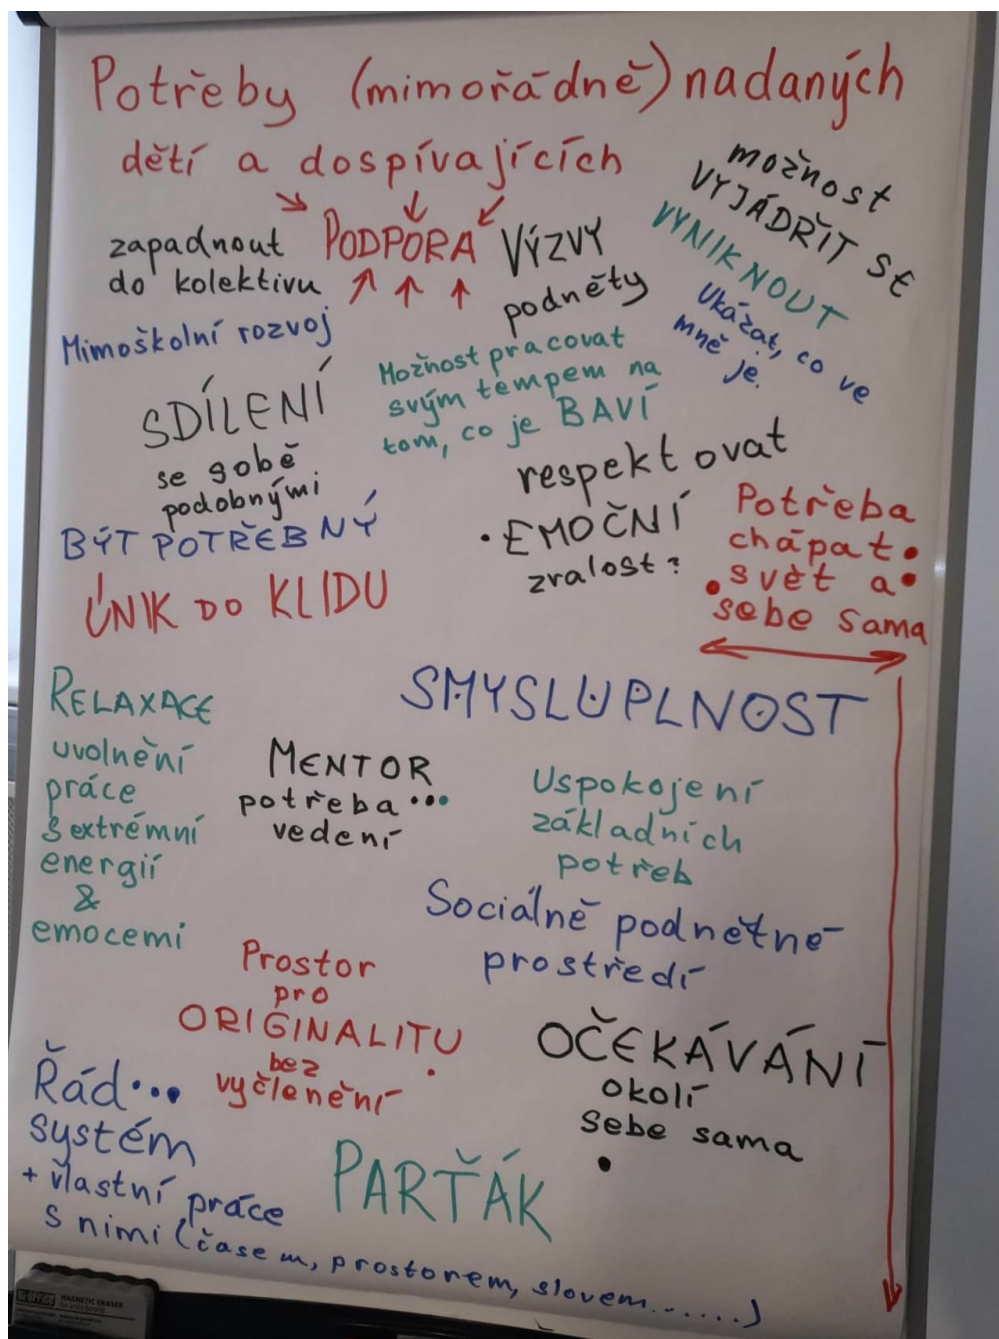 Potřeby (mimořádně) nadaných
dětí a dospívajících
PODPORA
zapadnout
do kolektivu
VÝZVY
podněty
možnost
VYJÁDŘIT SE
VYNIKNOUT
Ukázat, co ve
mně je.
Mimoškolní rozvoj
Možnost pracovat
svým tempem na
tom, co je BAVÍ
SDÍLENÍ
se sobě
podobnými
respektovat
• EMOČNÍ
zralost?
BÝT POTŘEBNÝ
Potřeba
chápat •
• svět a •
sebe sama
ÚNIK DO KLIDU
SMYSLUPLNOST
RELAXACE
uvolnění
práce
s extrémní
energií
&
emocemi
MENTOR
potřeba •••
vedení
Uspokojení
základních
potřeb
Sociálně podnětné
prostředí
Prostor
pro
ORIGINALITU
bez
vyčlenění
OČEKÁVÁNÍ
okolí
sebe sama
Řád •••
systém
+ vlastní práce
s nimi (časem, prostorem, slovem.......)
PARŤÁK
BI-OFFICE MAGNETIC ERASER